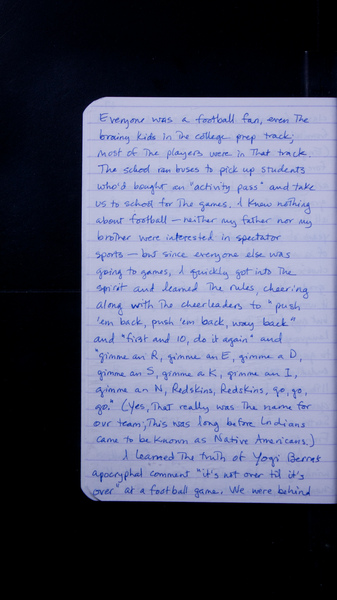 Everyone was a football fan, even the
brainy kids in the college prep track;
most of the players were in that track.
The school ran buses to pick up students
who'd bought an "activity pass" and take
us to school for the games. I knew nothing
about football — neither my father nor my
brother were interested in spectator
sports — but since everyone else was
going to games, I quickly got into the
spirit and learned the rules, cheering
along with the cheerleaders to "push
'em back, push 'em back, way back"
and "first and 10, do it again" and
"gimme an R, gimme an E, gimme a D,
gimme an S, gimme a K, gimme an I,
gimme an N, Redskins, Redskins, go, go,
go." (Yes, that really was the name for
our team; this was long before Indians
came to be known as Native Americans.)
I learned the truth of Yogi Berra's
apocryphal comment "it's not over til it's
over" at a football game. We were behind